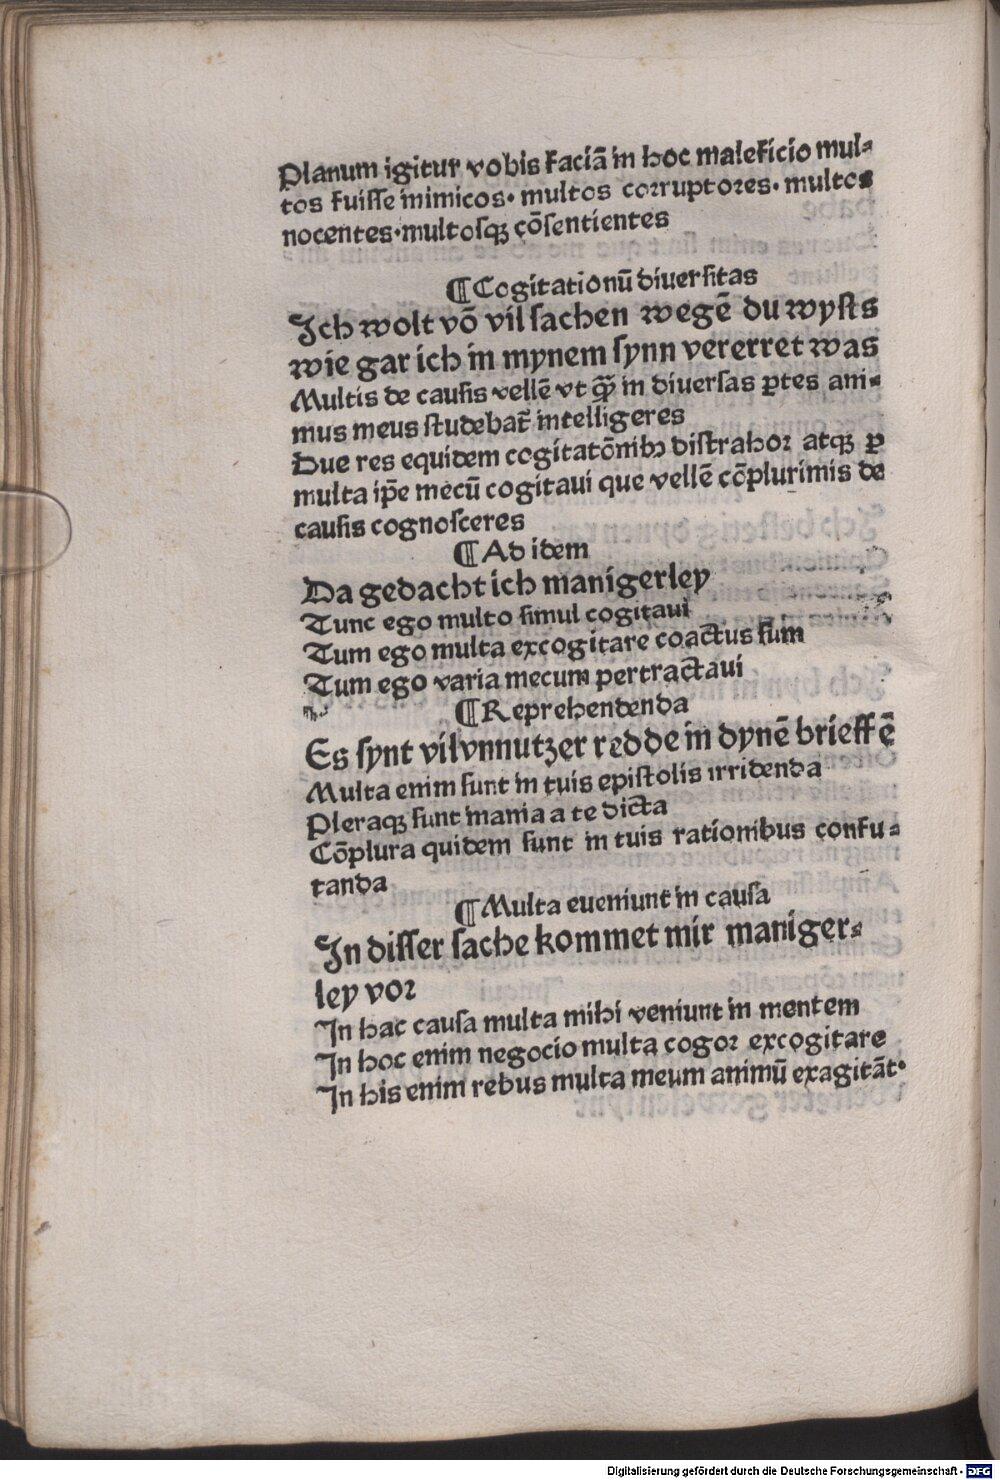 Planum igitur vobis faciā in hoc maleficio mul-
tos fuisse inimicos. multos corruptores. multos
nocentes. multosqꝫ cōsentientes
¶ Cogitationū diuersitas
Ich wolt vō vil sachen wegē du wysts
wie gar ich in mynem synn vererret was
Multis de causis vellē vt qꝫ in diuersas ꝑtes ani-
mus meus studebat intelligeres
Due res equidem cogitatōnibꝫ distrahor atqꝫ ꝑ
multa ip̄e mecū cogitaui que vellē cōplurimis de
causis cognosceres
¶ Ad idem
Da gedacht ich manigerley
Tunc ego multo simul cogitaui
Tum ego multa excogitare coactus sum
Tum ego varia mecum pertractaui
¶ Reprehendenda
Es synt vil vnnutzer redde in dynē brieffē
Multa enim sunt in tuis epistolis irridenda
Pleraqꝫ sunt inania a te dicta
Cōplura quidem sunt in tuis rationibus confu-
tanda
¶ Multa eueniunt in causa
In disser sache kommet mir maniger-
ley vor
In hac causa multa mihi veniunt in mentem
In hoc enim negocio multa cogor excogitare
In his enim rebus multa meum animū exagitāt.
Digitalisierung gefördert durch die Deutsche Forschungsgemeinschaft - DFG